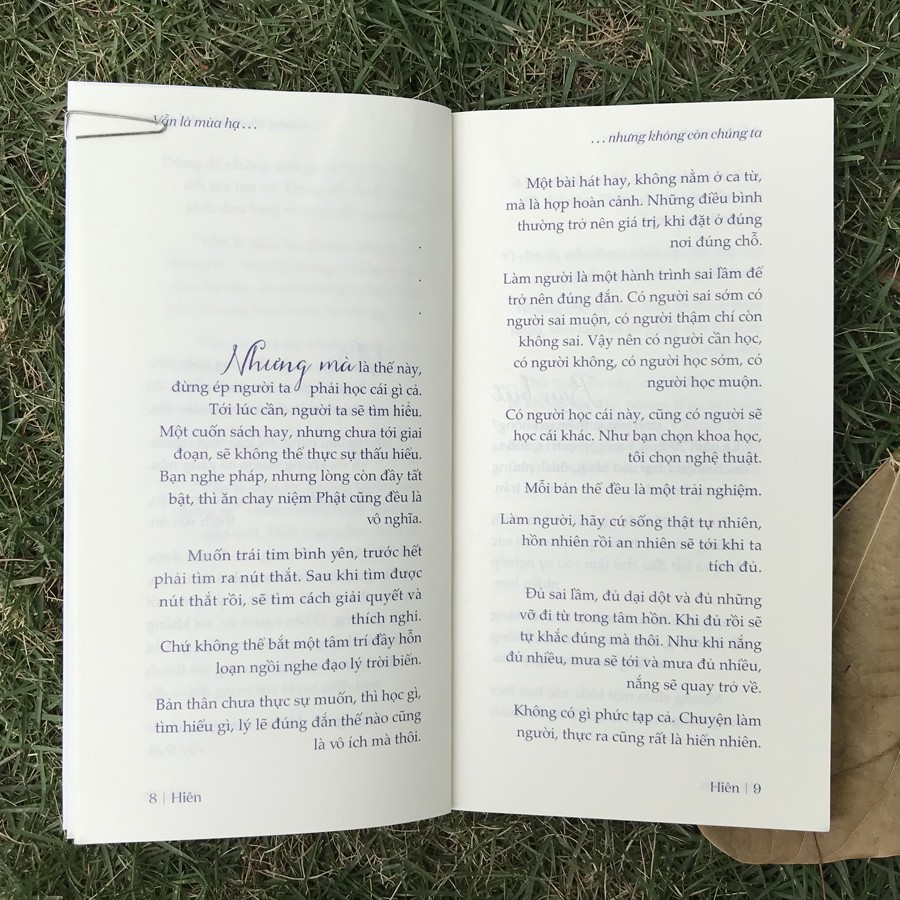 Vẫn là mùa hạ…
.
.
.
Nhưng mà là thế này,
đừng ép người ta phải học cái gì cả.
Tới lúc cần, người ta sẽ tìm hiểu.
Một cuốn sách hay, nhưng chưa tới giai
đoạn, sẽ không thể thực sự thấu hiểu.
Bạn nghe pháp, nhưng lòng còn đầy tất
bật, thì ăn chay niệm Phật cũng đều là
vô nghĩa.
Muốn trái tim bình yên, trước hết
phải tìm ra nút thắt. Sau khi tìm được
nút thắt rồi, sẽ tìm cách giải quyết và
thích nghi.
Chứ không thể bắt một tâm trí đầy hỗn
loạn ngồi nghe đạo lý trời biển.
Bản thân chưa thực sự muốn, thì học gì,
tìm hiểu gì, lý lẽ đúng đắn thế nào cũng
là vô ích mà thôi.
8 | Hiên
…nhưng không còn chúng ta
Một bài hát hay, không nằm ở ca từ,
mà là hợp hoàn cảnh. Những điều bình
thường trở nên giá trị, khi đặt ở đúng
nơi đúng chỗ.
Làm người là một hành trình sai lầm để
trở nên đúng đắn. Có người sai sớm có
người sai muộn, có người thậm chí còn
không sai. Vậy nên có người cần học,
có người không, có người học sớm, có
người học muộn.
Có người học cái này, cũng có người sẽ
học cái khác. Như bạn chọn khoa học,
tôi chọn nghệ thuật.
Mỗi bản thể đều là một trải nghiệm.
Làm người, hãy cứ sống thật tự nhiên,
hồn nhiên rồi an nhiên sẽ tới khi ta
tích đủ.
Đủ sai lầm, đủ dại dột và đủ những
vỡ đi từ trong tâm hồn. Khi đủ rồi sẽ
tự khắc đúng mà thôi. Như khi nắng
đủ nhiều, mưa sẽ tới và mưa đủ nhiều,
nắng sẽ quay trở về.
Không có gì phức tạp cả. Chuyện làm
người, thực ra cũng rất là hiển nhiên.
Hiên | 9